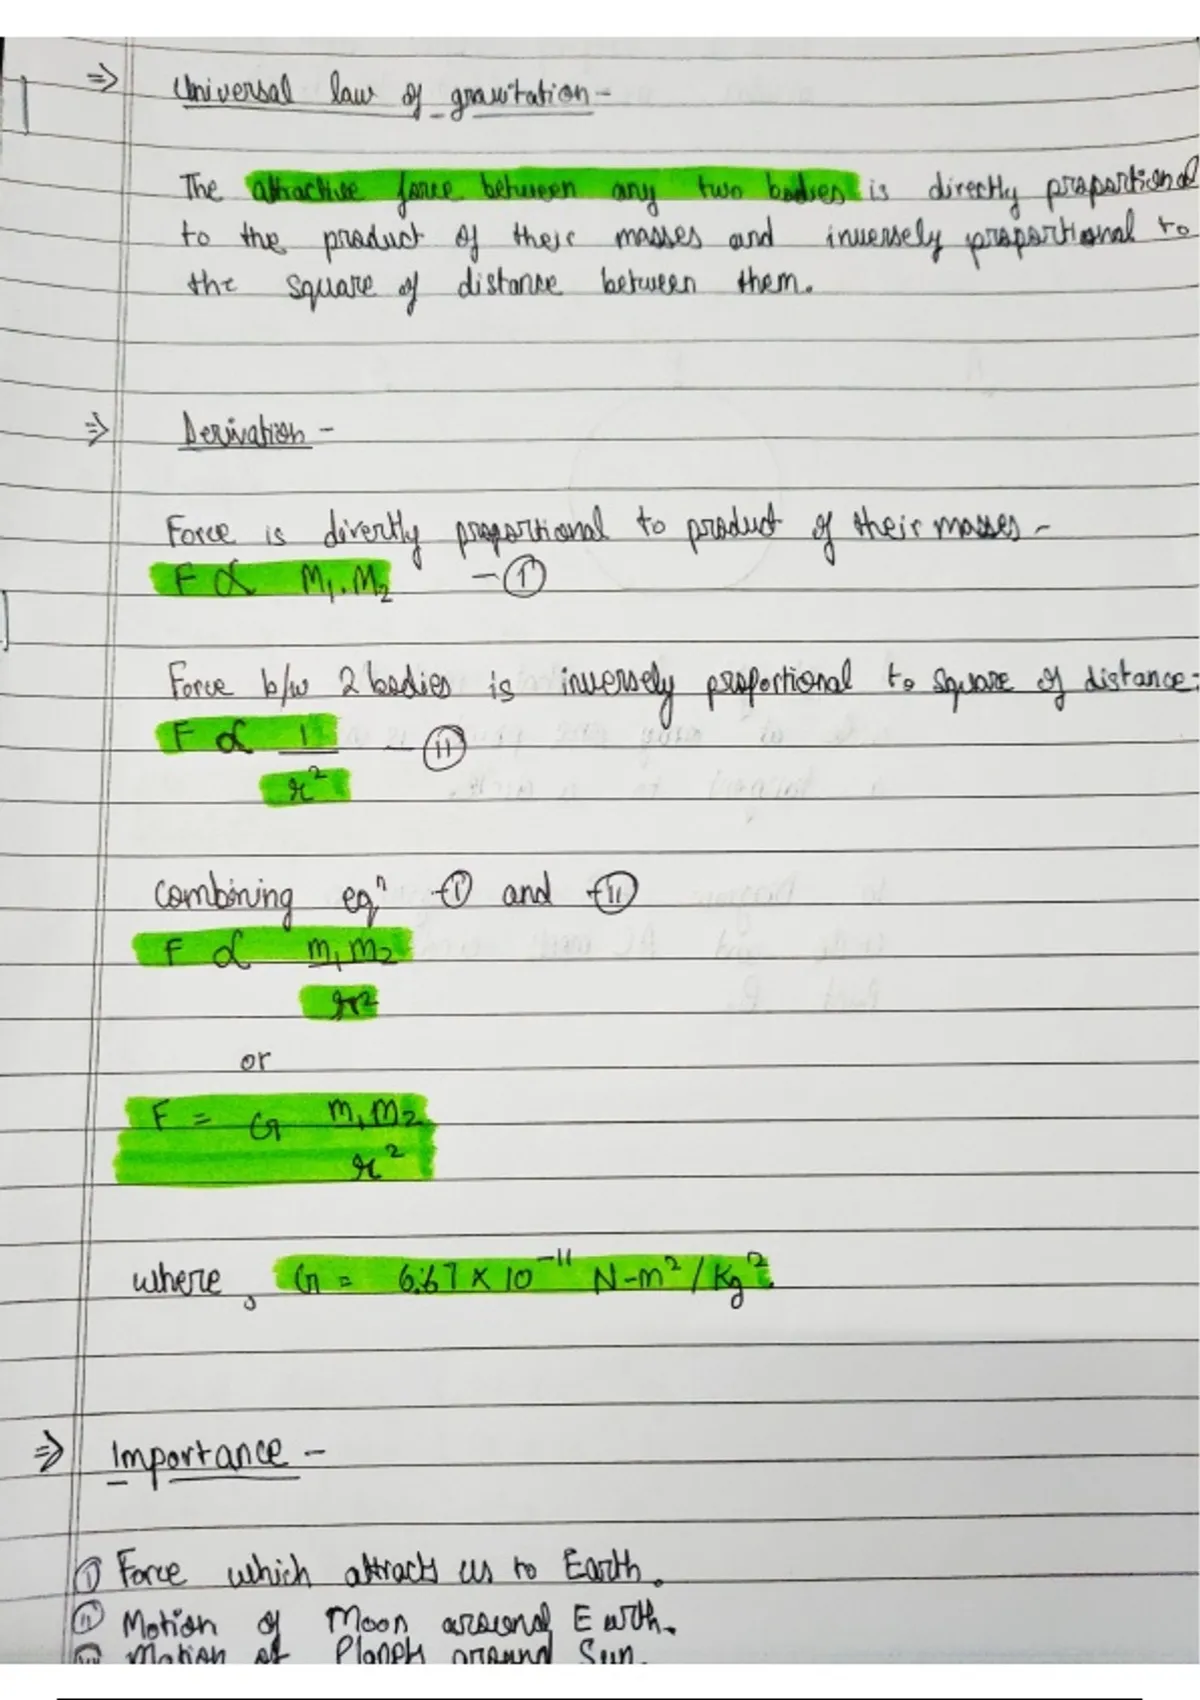 ⇒ Universal law of gravitation -
The attractive force between any two bodies is directly proportional
to the product of their masses and inversely proportional to
the square of distance between them.
⇒ Derivation -
Force is divertly proportional to product of their masses -
F ∝ M₁.M₂ - (i)
Force b/w 2 bodies is inversely proportional to square of distance:
F ∝ 1 - (ii)
r²
combining eqⁿ - (i) and - (ii)
F ∝ m₁ m₂
r²
or
F = G m₁ m₂
r²
where, G = 6.67 × 10⁻¹¹ N-m² / Kg².
⇒ Importance -
(i) Force which attracts us to Earth.
(ii) Motion of Moon around Earth.
(iii) Motion of Planets around Sun.